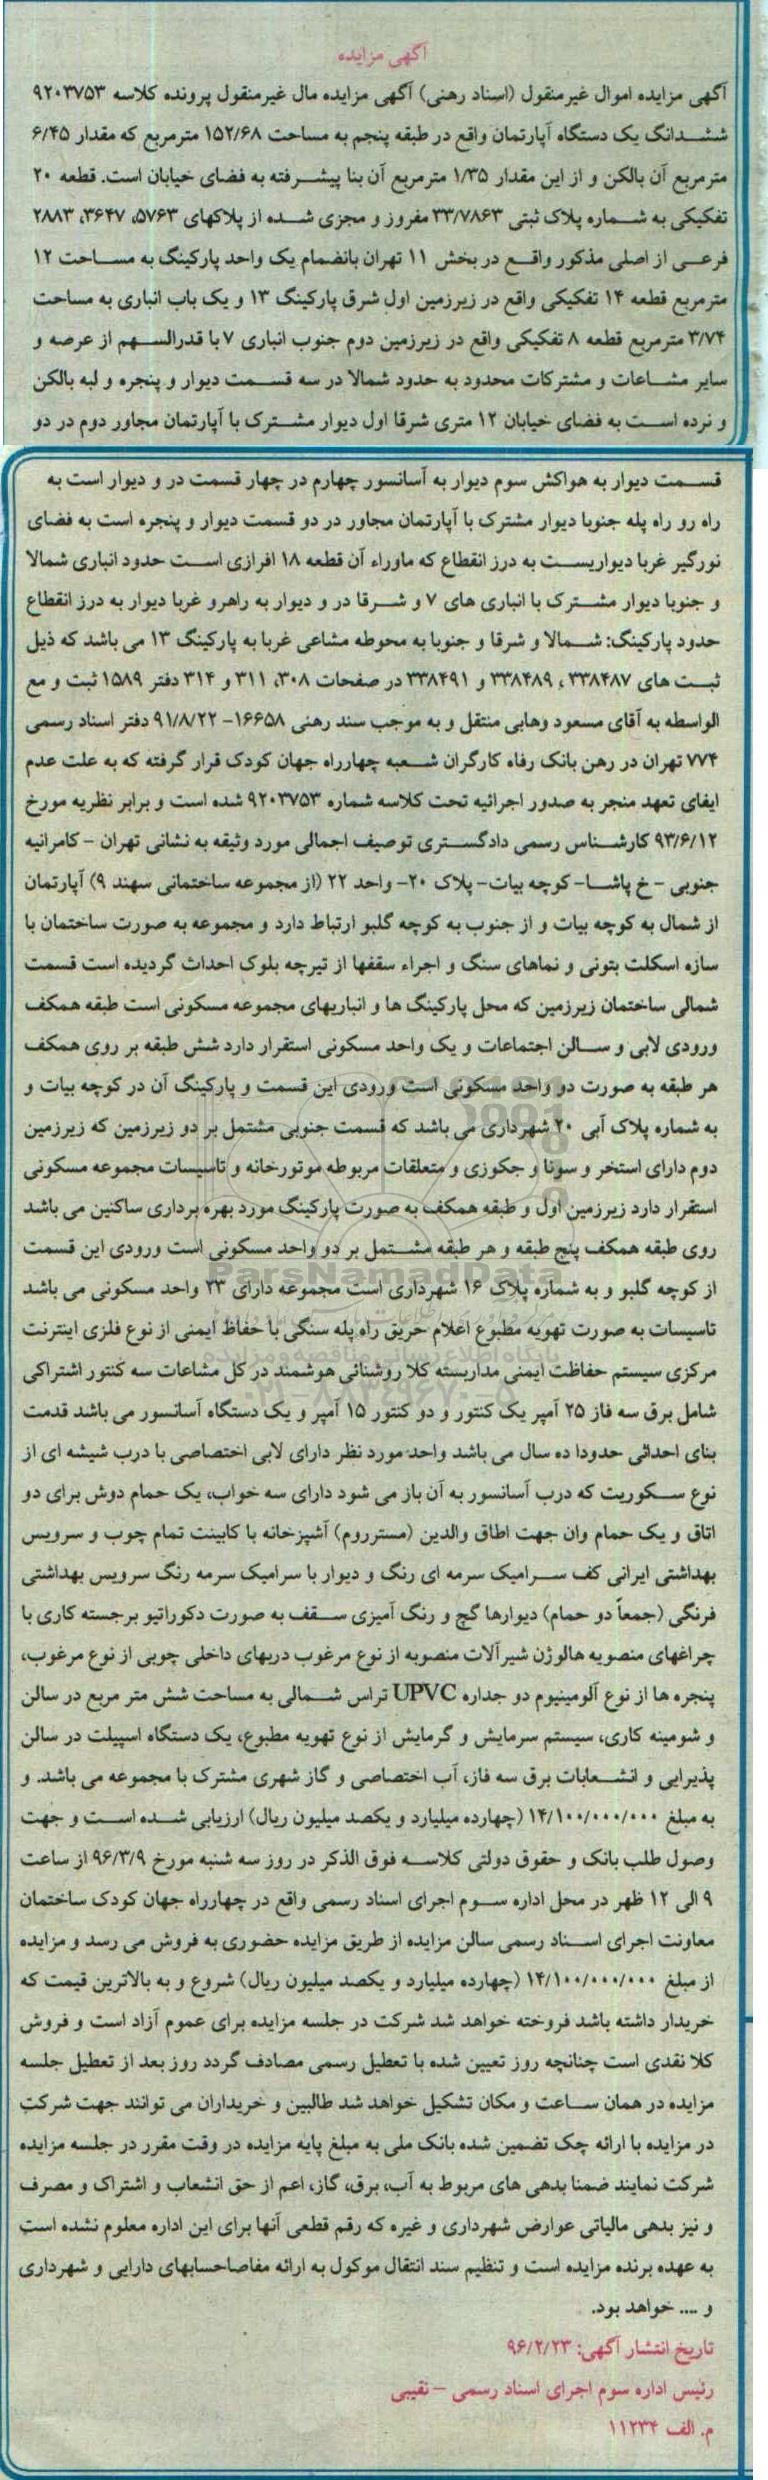 آگهی مزایده
آگهی مزایده اموال غیرمنقول (اسناد رهنی) آگهی مزایده مال غیرمنقول پرونده کلاسه ۹۲۰۳۷۵۳
ششدانگ یک دستگاه آپارتمان واقع در طبقه پنجم به مساحت ۱۵۲/۶۸ مترمربع که مقدار ۶/۴۵
مترمربع آن بالکن و از این مقدار ۱/۳۵ مترمربع آن بنا پیشرفته به فضای خیابان است. قطعه ۲۰
تفکیکی به شماره پلاک ثبتی ۳۳/۷۸۶۳ مفروز و مجزی شده از پلاکهای ۵۷۶۳، ۳۶۴۷، ۲۸۸۳
فرعی از اصلی مذکور واقع در بخش ۱۱ تهران بانضمام یک واحد پارکینگ به مساحت ۱۲
مترمربع قطعه ۱۴ تفکیکی واقع در زیرزمین اول شرق پارکینگ ۱۳ و یک باب انباری به مساحت
۳/۷۴ مترمربع قطعه ۸ تفکیکی واقع در زیرزمین دوم جنوب انباری ۷ با قدرالسهم از عرصه و
سایر مشاعات و مشترکات محدود به حدود شمالا در سه قسمت دیوار و پنجره و لبه بالکن
و نرده است به فضای خیابان ۱۲ متری شرقا اول دیوار مشترک با آپارتمان مجاور دوم در دو
قسمت دیوار به هواکش سوم دیوار به آسانسور چهارم در چهار قسمت در و دیوار است به
راه رو راه پله جنوبا دیوار مشترک با آپارتمان مجاور در دو قسمت دیوار و پنجره است به فضای
نورگیر غربا دیواریست به درز انقطاع که ماوراء آن قطعه ۱۸ افرازی است حدود انباری شمالا
و جنوبا دیوار مشترک با انباری های ۷ و شرقا در و دیوار به راهرو غربا دیوار به درز انقطاع
حدود پارکینگ: شمالا و شرقا و جنوبا به محوطه مشاعی غربا به پارکینگ ۱۳ می باشد که ذیل
ثبت های ۳۳۸۴۸۷ ، ۳۳۸۴۸۹ و ۳۳۸۴۹۱ در صفحات ۳۰۸، ۳۱۱ و ۳۱۴ دفتر ۱۵۸۹ ثبت و مع
الواسطه به آقای مسعود وهابی منتقل و به موجب سند رهنی ۱۶۶۵۸- ۹۱/۸/۲۲ دفتر اسناد رسمی
۷۷۴ تهران در رهن بانک رفاه کارگران شعبه چهارراه جهان کودک قرار گرفته که به علت عدم
ایفای تعهد منجر به صدور اجرائیه تحت کلاسه شماره ۹۲۰۳۷۵۳ شده است و برابر نظریه مورخ
۹۳/۶/۱۲ کارشناس رسمی دادگستری توصیف اجمالی مورد وثیقه به نشانی تهران - کامرانیه
جنوبی - خ پاشا- کوچه بیات- پلاک ۲۰- واحد ۲۲ (از مجموعه ساختمانی سهند ۹) آپارتمان
از شمال به کوچه بیات و از جنوب به کوچه گلبو ارتباط دارد و مجموعه به صورت ساختمان با
سازه اسکلت بتونی و نماهای سنگ و اجراء سقفها از تیرچه بلوک احداث گردیده است قسمت
شمالی ساختمان زیرزمین که محل پارکینگ ها و انباریهای مجموعه مسکونی است طبقه همکف
ورودی لابی و سالن اجتماعات و یک واحد مسکونی استقرار دارد شش طبقه بر روی همکف
هر طبقه به صورت دو واحد مسکونی است ورودی این قسمت و پارکینگ آن در کوچه بیات و
به شماره پلاک آبی ۲۰ شهرداری می باشد که قسمت جنوبی مشتمل بر دو زیرزمین که زیرزمین
دوم دارای استخر و سونا و جکوزی و متعلقات مربوطه موتورخانه و تاسیسات مجموعه مسکونی
استقرار دارد زیرزمین اول و طبقه همکف به صورت پارکینگ مورد بهره برداری ساکنین می باشد
روی طبقه همکف پنج طبقه و هر طبقه مشتمل بر دو واحد مسکونی است ورودی این قسمت
از کوچه گلبو و به شماره پلاک ۱۶ شهرداری است مجموعه دارای ۲۳ واحد مسکونی می باشد
تاسیسات به صورت تهویه مطبوع اعلام حریق راه پله سنگی با حفاظ ایمنی از نوع فلزی اینترنت
مرکزی سیستم حفاظت ایمنی مداربسته کلا روشنائی هوشمند در کل مشاعات سه کنتور اشتراکی
شامل برق سه فاز ۲۵ آمپر یک کنتور و دو کنتور ۱۵ آمپر و یک دستگاه آسانسور می باشد قدمت
بنای احداثی حدودا ده سال می باشد واحد مورد نظر دارای لابی اختصاصی با درب شیشه ای از
نوع سکوریت که درب آسانسور به آن باز می شود دارای سه خواب، یک حمام دوش برای دو
اتاق و یک حمام وان جهت اطاق والدین (مستر‌روم) آشپزخانه با کابینت تمام چوب و سرویس
بهداشتی ایرانی کف سرامیک سرمه ای رنگ و دیوار با سرامیک سرمه رنگ سرویس بهداشتی
فرنگی (جمعاً دو حمام) دیوارها گچ و رنگ آمیزی سقف به صورت دکوراتیو برجسته کاری با
چراغهای منصوبه هالوژن شیرآلات منصوبه از نوع مرغوب دربهای داخلی چوبی از نوع مرغوب،
پنجره ها از نوع آلومینیوم دو جداره UPVC تراس شمالی به مساحت شش متر مربع در سالن
و شومینه کاری، سیستم سرمایش و گرمایش از نوع تهویه مطبوع، یک دستگاه اسپیلت در سالن
پذیرایی و انشعابات برق سه فاز، آب اختصاصی و گاز شهری مشترک با مجموعه می باشد. و
به مبلغ ۱۴/۱۰۰/۰۰۰/۰۰۰ (چهارده میلیارد و یکصد میلیون ریال) ارزیابی شده است و جهت
وصول طلب بانک و حقوق دولتی کلاسه فوق الذکر در روز سه شنبه مورخ ۹۶/۳/۹ از ساعت
۹ الی ۱۲ ظهر در محل اداره سوم اجرای اسناد رسمی واقع در چهارراه جهان کودک ساختمان
معاونت اجرای اسناد رسمی سالن مزایده از طریق مزایده حضوری به فروش می رسد و مزایده
از مبلغ ۱۴/۱۰۰/۰۰۰/۰۰۰ (چهارده میلیارد و یکصد میلیون ریال) شروع و به بالاترین قیمت که
خریدار داشته باشد فروخته خواهد شد شرکت در جلسه مزایده برای عموم آزاد است و فروش
کلا نقدی است چنانچه روز تعیین شده با تعطیل رسمی مصادف گردد روز بعد از تعطیل جلسه
مزایده در همان ساعت و مکان تشکیل خواهد شد طالبین و خریداران می توانند جهت شرکت
در مزایده با ارائه چک تضمین شده بانک ملی به مبلغ پایه مزایده در وقت مقرر در جلسه مزایده
شرکت نمایند ضمنا بدهی های مربوط به آب، برق، گاز، اعم از حق انشعاب و اشتراک و مصرف
و نیز بدهی مالیاتی عوارض شهرداری و غیره که رقم قطعی آنها برای این اداره معلوم نشده است
به عهده برنده مزایده است و تنظیم سند انتقال موکول به ارائه مفاصاحسابهای دارایی و شهرداری
و .... خواهد بود.
تاریخ انتشار آگهی: ۹۶/۲/۲۳
رئیس اداره سوم اجرای اسناد رسمی - نقیبی
م. الف ۱۱۲۳۴
ParsNamadData